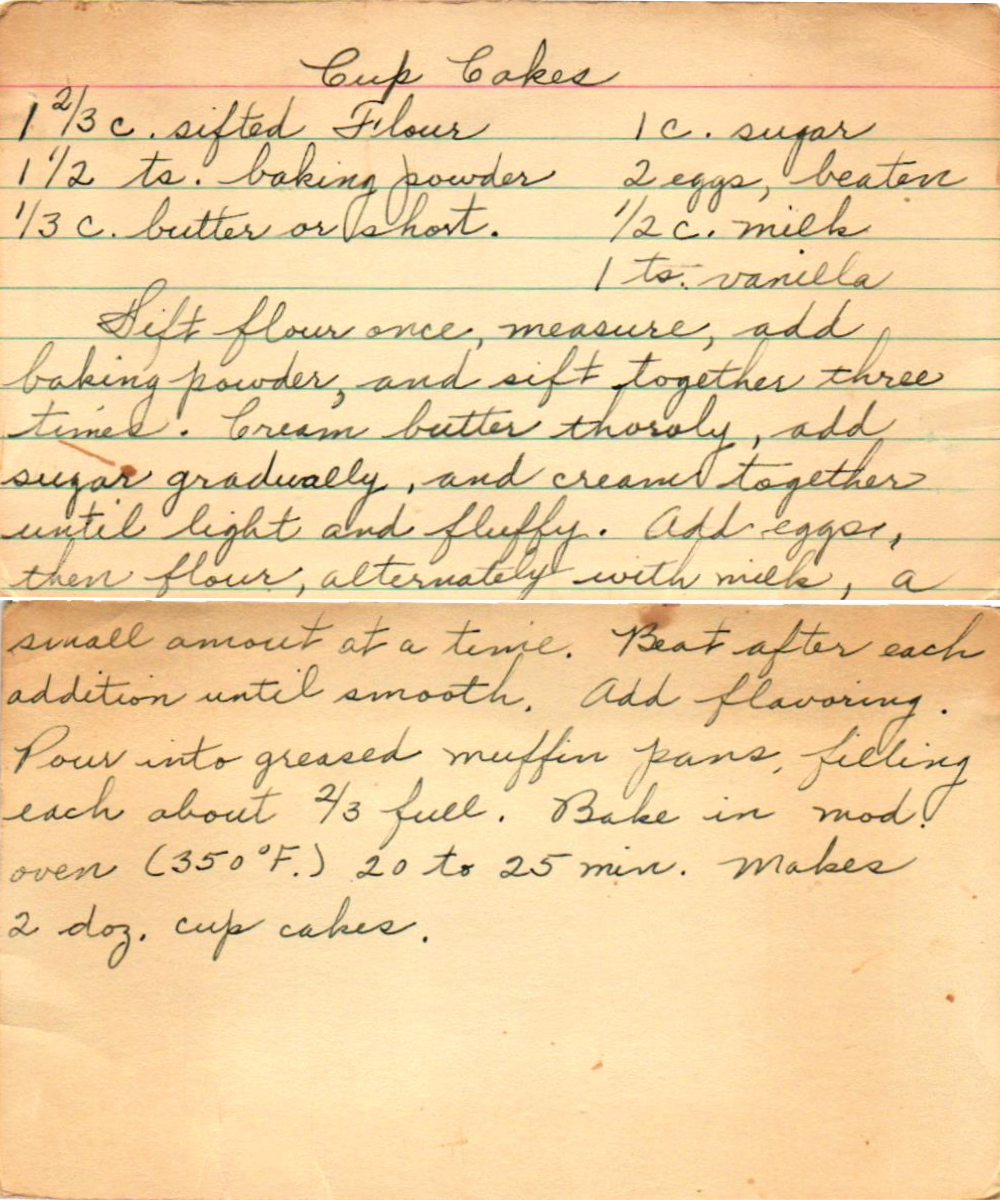 Cup Cakes
1 2/3 c. sifted Flour 1 c. sugar
1 1/2 ts. baking powder 2 eggs, beaten
1/3 c. butter or short. 1/2 c. milk
1 ts. vanilla
Sift flour once, measure, add
baking powder, and sift together three
times. Cream butter thoroly, add
sugar gradually, and cream together
until light and fluffy. Add eggs,
then flour, alternately with milk, a
small amout at a time. Beat after each
addition until smooth. Add flavoring.
Pour into greased muffin pans, filling
each about 2/3 full. Bake in mod.
oven (350°F.) 20 to 25 min. Makes
2 doz. cup cakes.